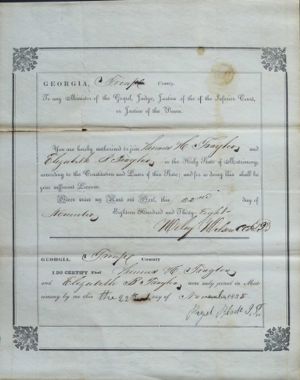 GEORGIA, Troup County.
To any Minister of the Gospel, Judge, Justice of the Inferior Court,
or Justice of the Peace.
You are hereby authorized to join H. Traylor and
Elizabeth Traylor in the Holy State of Matrimony,
according to the Constitution and Laws of this State; and for so doing this shall be
your sufficient License.
Given under my Hand and Seal, this 22nd day of
November Eighteen Hundred and Thirty Eight
Wiley Wilson
GEORGIA, Troup County
I DO CERTIFY That H. Traylor
and Elizabeth Traylor were duly joined in Matrimony
by me this the 22nd day of November 1838
J. P.